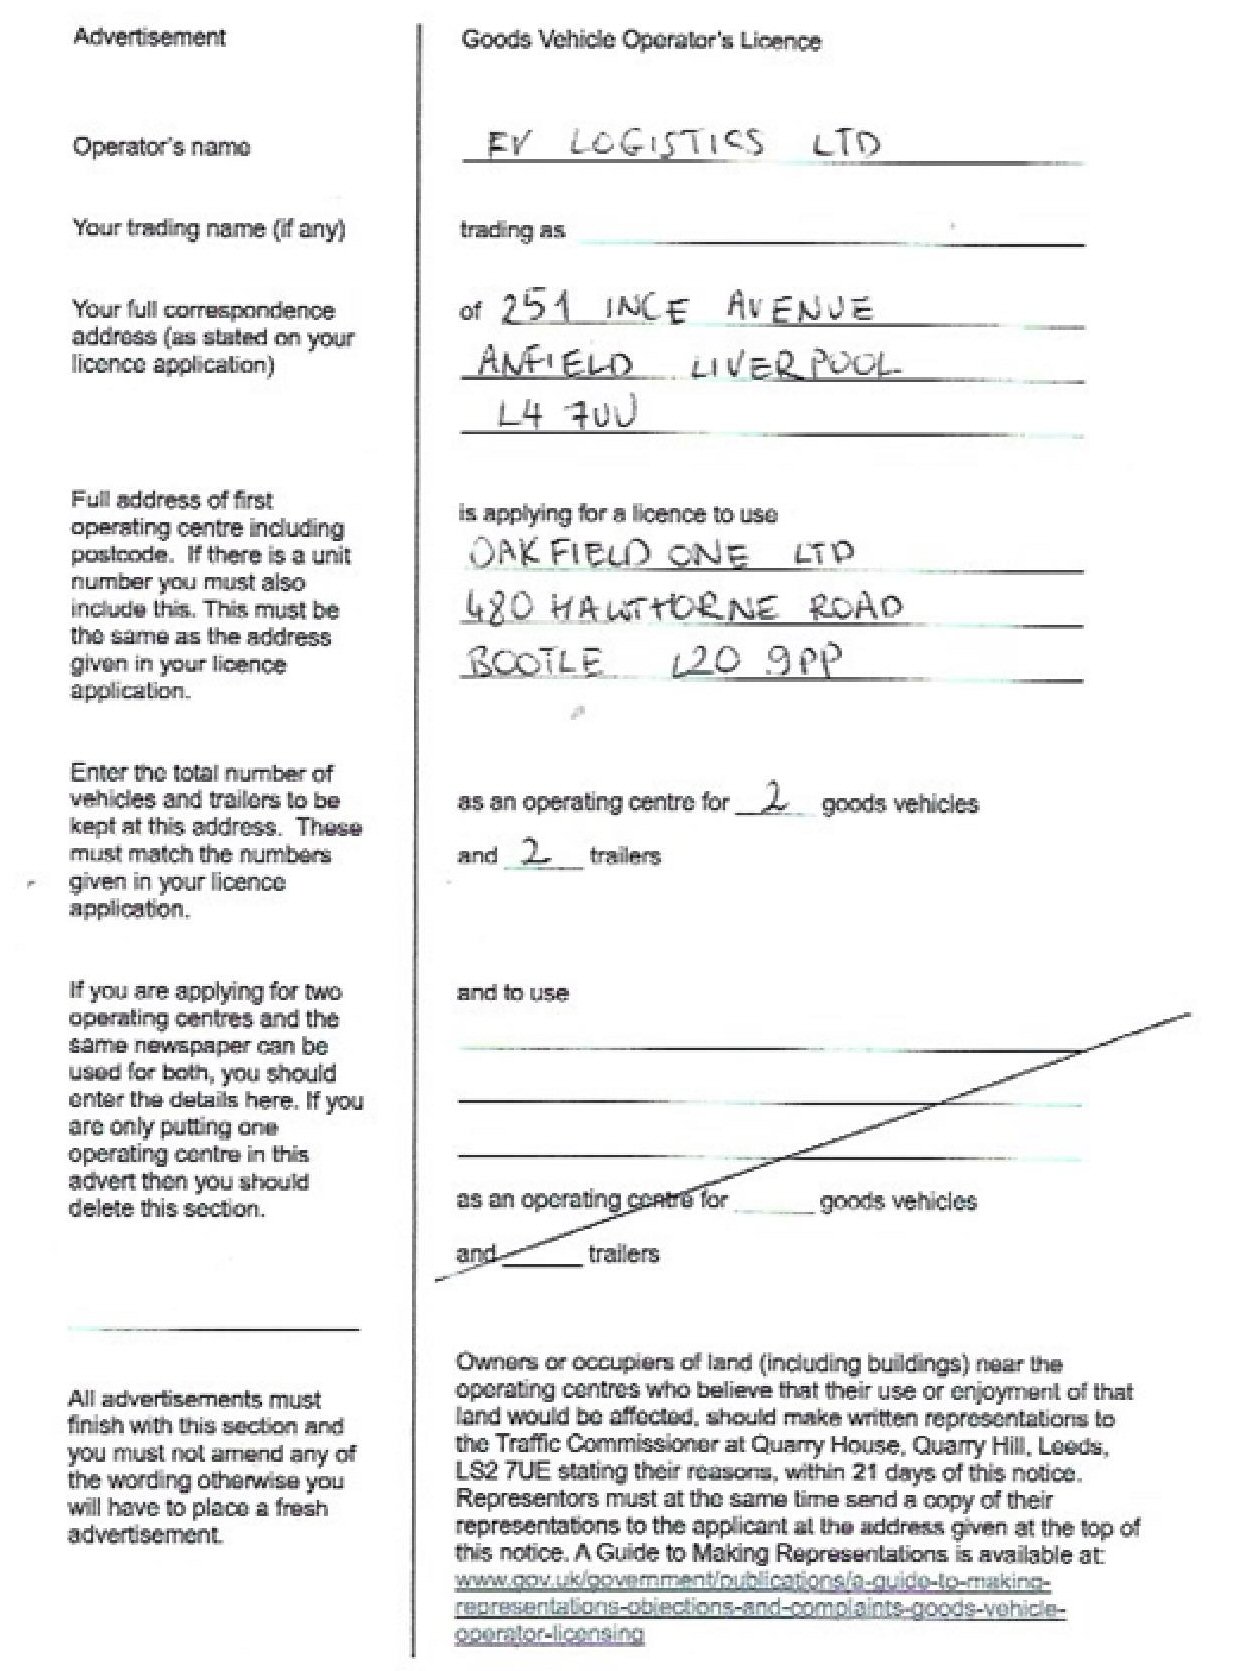 Advertisement
Goods Vehicle Operator's Licence
Operator's name
EV LOGISTICS LTD
Your trading name (if any)
trading as
Your full correspondence
address (as stated on your
licence application)
of 251 INCE AVENUE
ANFIELD LIVERPOOL
L4 7UU
Full address of first
operating centre including
postcode. If there is a unit
number you must also
include this. This must be
the same as the address
given in your licence
application.
is applying for a licence to use
OAKFIELD ONE LTD
480 HAWTHORNE ROAD
BOOTLE L20 9PP
Enter the total number of
vehicles and trailers to be
kept at this address. These
must match the numbers
given in your licence
application.
as an operating centre for 2 goods vehicles
and 2 trailers
If you are applying for two
operating centres and the
same newspaper can be
used for both, you should
enter the details here. If you
are only putting one
operating centre in this
advert then you should
delete this section.
and to use
as an operating centre for goods vehicles
and trailers
All advertisements must
finish with this section and
you must not amend any of
the wording otherwise you
will have to place a fresh
advertisement.
Owners or occupiers of land (including buildings) near the
operating centres who believe that their use or enjoyment of that
land would be affected, should make written representations to
the Traffic Commissioner at Quarry House, Quarry Hill, Leeds,
LS2 7UE stating their reasons, within 21 days of this notice.
Representors must at the same time send a copy of their
representations to the applicant at the address given at the top of
this notice. A Guide to Making Representations is available at:
www.gov.uk/government/publications/a-guide-to-making-
representations-objections-and-complaints-goods-vehicle-
operator-licensing